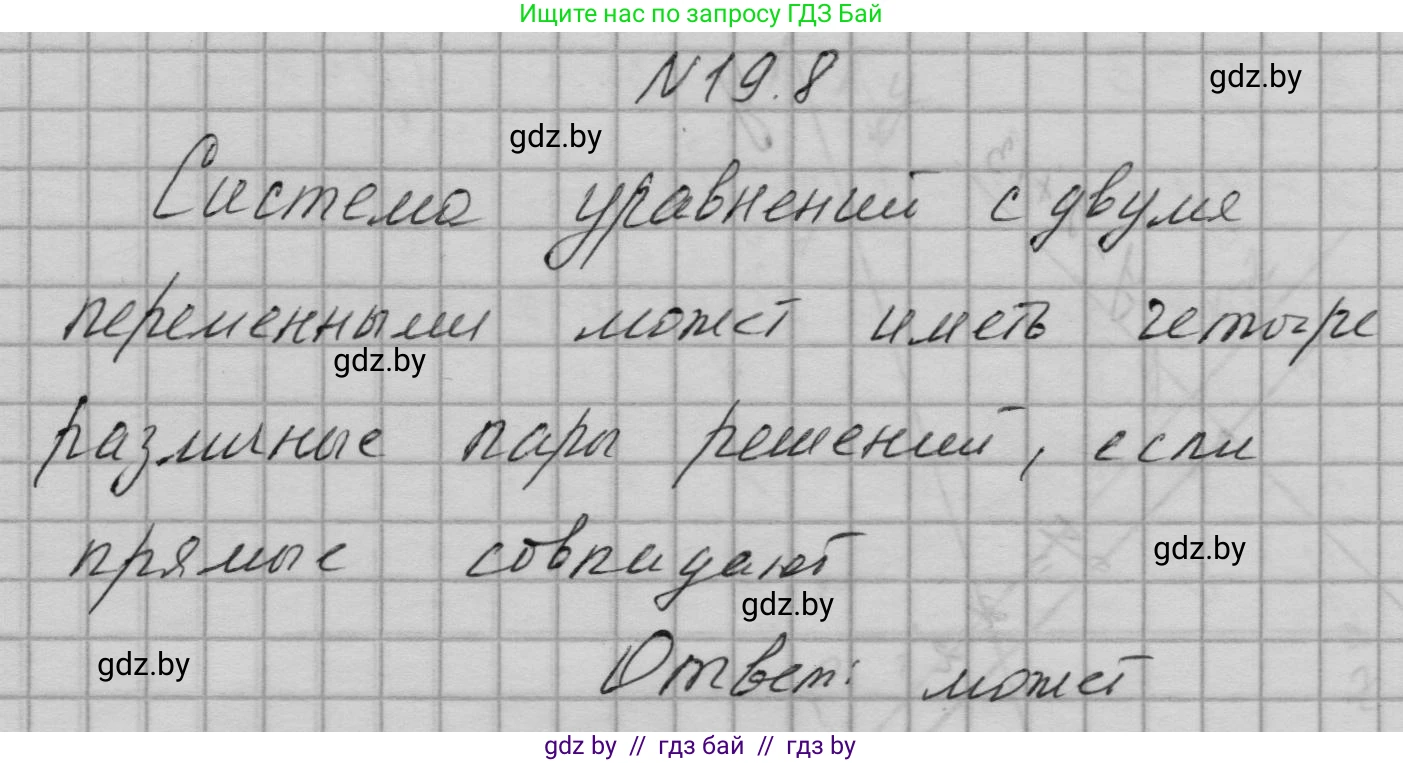 Ищите нас по запросу ГДЗ Бай
N19.8
gdz.by
gdz.by
Система уравнений с двумя
переменными может иметь четыре
gdz.by
различные пары решений, если
прямые совпадают
gdz.by
gdz.by
Ответ: может
gdz.by
gdz by // гдз бай // гдз by